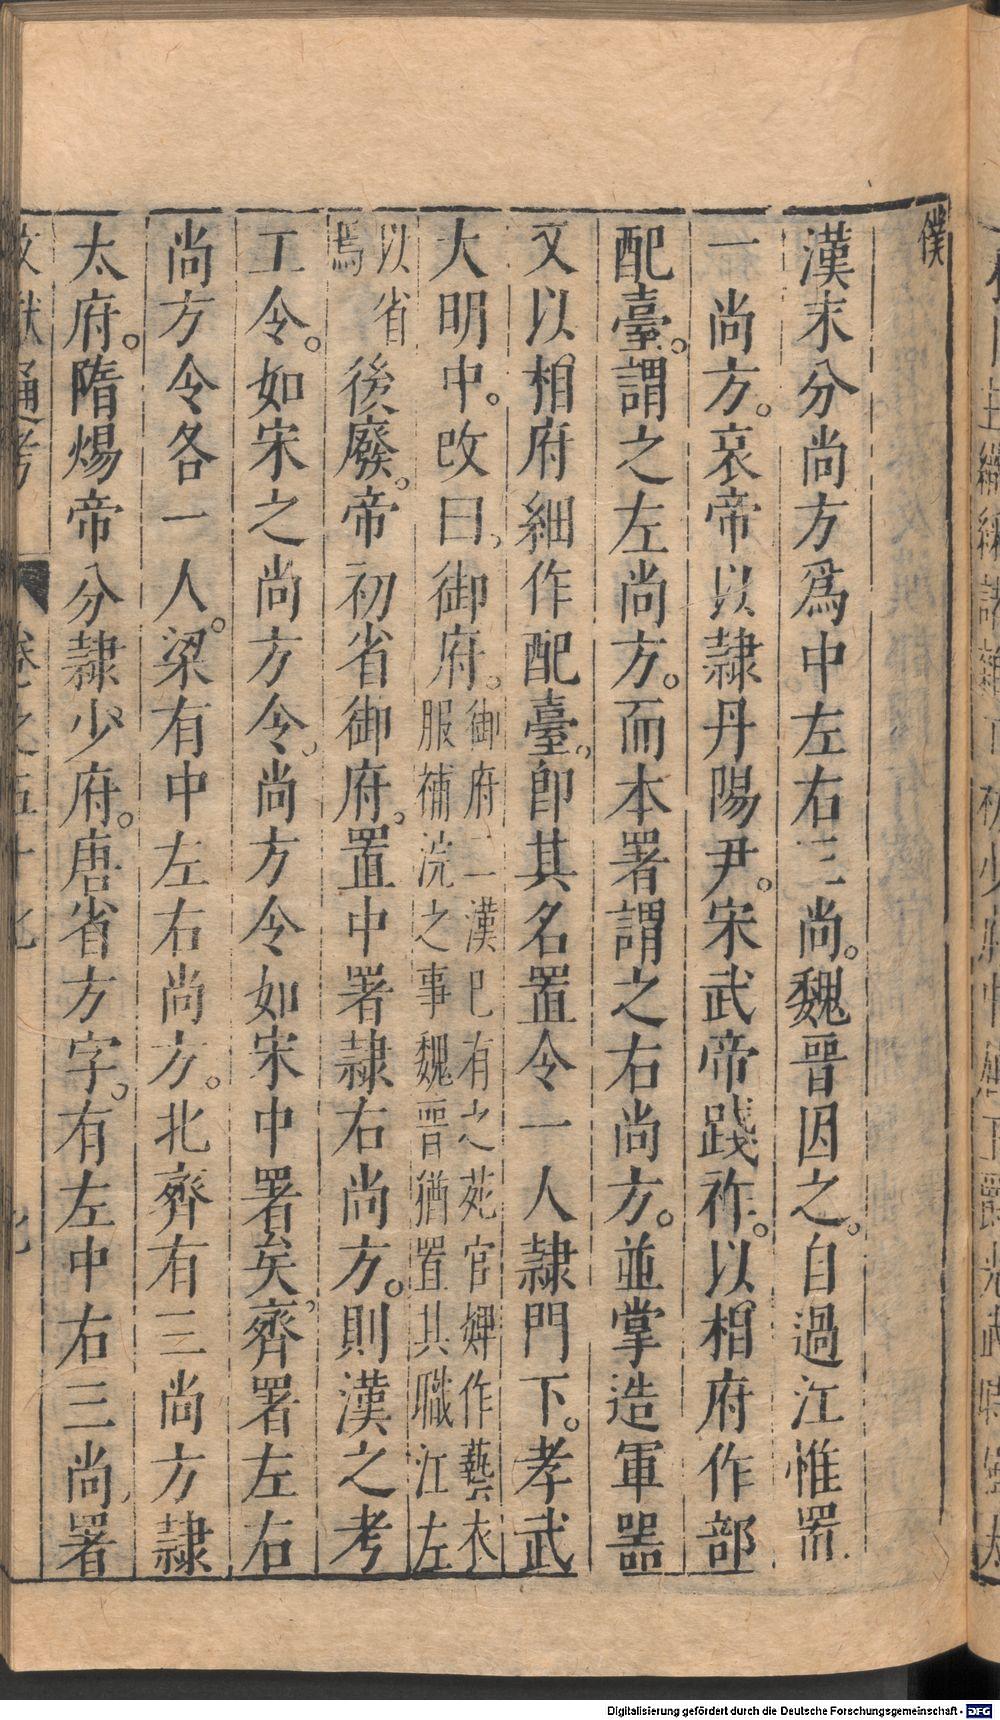 僕
漢末分尚方爲中左右三尚。魏晉因之。自過江惟置
一尚方。哀帝以隷丹陽尹。宋武帝踐祚。以相府作部
配臺。謂之左尚方。而本署謂之右尚方。並掌造軍器
又以相府細作配臺。卽其名置令一人隷門下。孝武
大明中。改曰、御府。御府二漢已有之苑官婢作藝衣
服補浣之事魏晉猶置其職江左
以省
焉 後廢。帝初省御府。置中署隷右尚方。則漢之考
工令。如宋之尚方令。尚方令如宋中署矣。齊署左右
尚方令各一人。梁有中左右尚方。北齊有三尚方隷
太府。隋煬帝分隷少府。唐省方字。有左中右三尚署
文獻通考 卷之五十九
Digitalisierung gefördert durch die Deutsche Forschungsgemeinschaft - DFG